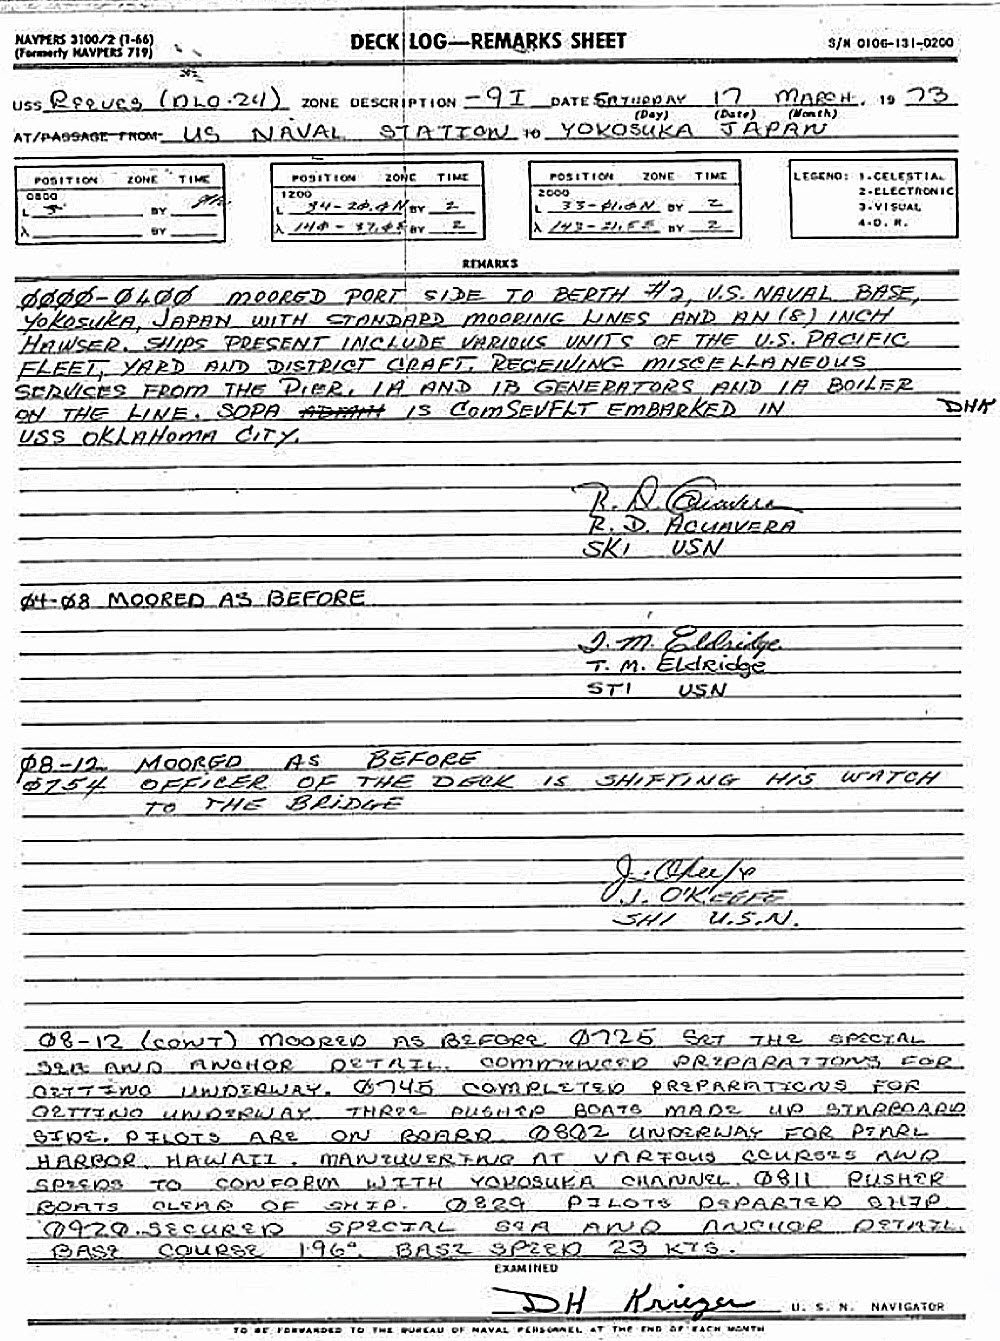 NAVPERS 3100/2 (1-66)
(Formerly NAVPERS 719)
DECK LOG—REMARKS SHEET
S/N 0106-131-0200
USS REEVES (DLG-24) ZONE DESCRIPTION -9I DATE SATURDAY 17 MARCH, 19 73
(Day) (Date) (Month)
AT/PASSAGE FROM US NAVAL STATION to YOKOSUKA JAPAN
POSITION ZONE TIME
0800
L BY
λ BY
POSITION ZONE TIME
1200
L 34- BY 2
λ 140- BY 2
POSITION ZONE TIME
2000
L 33- BY 2
λ 143- BY 2
LEGEND: 1-CELESTIAL
2-ELECTRONIC
3-VISUAL
4-D. R.
REMARKS
0000-0400 MOORED PORT SIDE TO BERTH #2, U.S. NAVAL BASE,
YOKOSUKA, JAPAN WITH STANDARD MOORING LINES AND AN (8) INCH
HAWSER. SHIPS PRESENT INCLUDE VARIOUS UNITS OF THE U.S. PACIFIC
FLEET, YARD AND DISTRICT CRAFT. RECEIVING MISCELLANEOUS
SERVICES FROM THE PIER. 1A AND 1B GENERATORS AND 1A BOILER
ON THE LINE. SOPA IS COMSEVFLT EMBARKED IN DHK
USS OKLAHOMA CITY.
R. D. Acuavera
R. D. ACUAVERA
SK1 USN
04-08 MOORED AS BEFORE
T. M. Eldridge
T. M. ELdRidge
ST1 USN
08-12 MOORED AS BEFORE
0754 OFFICER OF THE DECK IS SHIFTING HIS WATCH
TO THE BRIDGE
J. O'Keefe
J. O'KEEFE
SH1 U.S.N.
08-12 (CONT) MOORED AS BEFORE 0725 SET THE SPECIAL
SEA AND ANCHOR DETAIL. COMMENCED PREPARATIONS FOR
GETTING UNDERWAY. 0745 COMPLETED PREPARATIONS FOR
GETTING UNDERWAY. THREE PUSHER BOATS MADE UP STARBOARD
SIDE. PILOTS ARE ON BOARD. 0802 UNDERWAY FOR PEARL
HARBOR, HAWAII. MANEUVERING AT VARIOUS COURSES AND
SPEEDS TO CONFORM WITH YOKOSUKA CHANNEL. 0811 PUSHER
BOATS CLEAR OF SHIP. 0829 PILOTS DEPARTED SHIP.
0920 SECURED SPECIAL SEA AND ANCHOR DETAIL.
BASE COURSE 196° BASE SPEED 23 KTS.
EXAMINED
DH Krieger U. S. N. NAVIGATOR
TO BE FORWARDED TO THE BUREAU OF NAVAL PERSONNEL AT THE END OF EACH MONTH